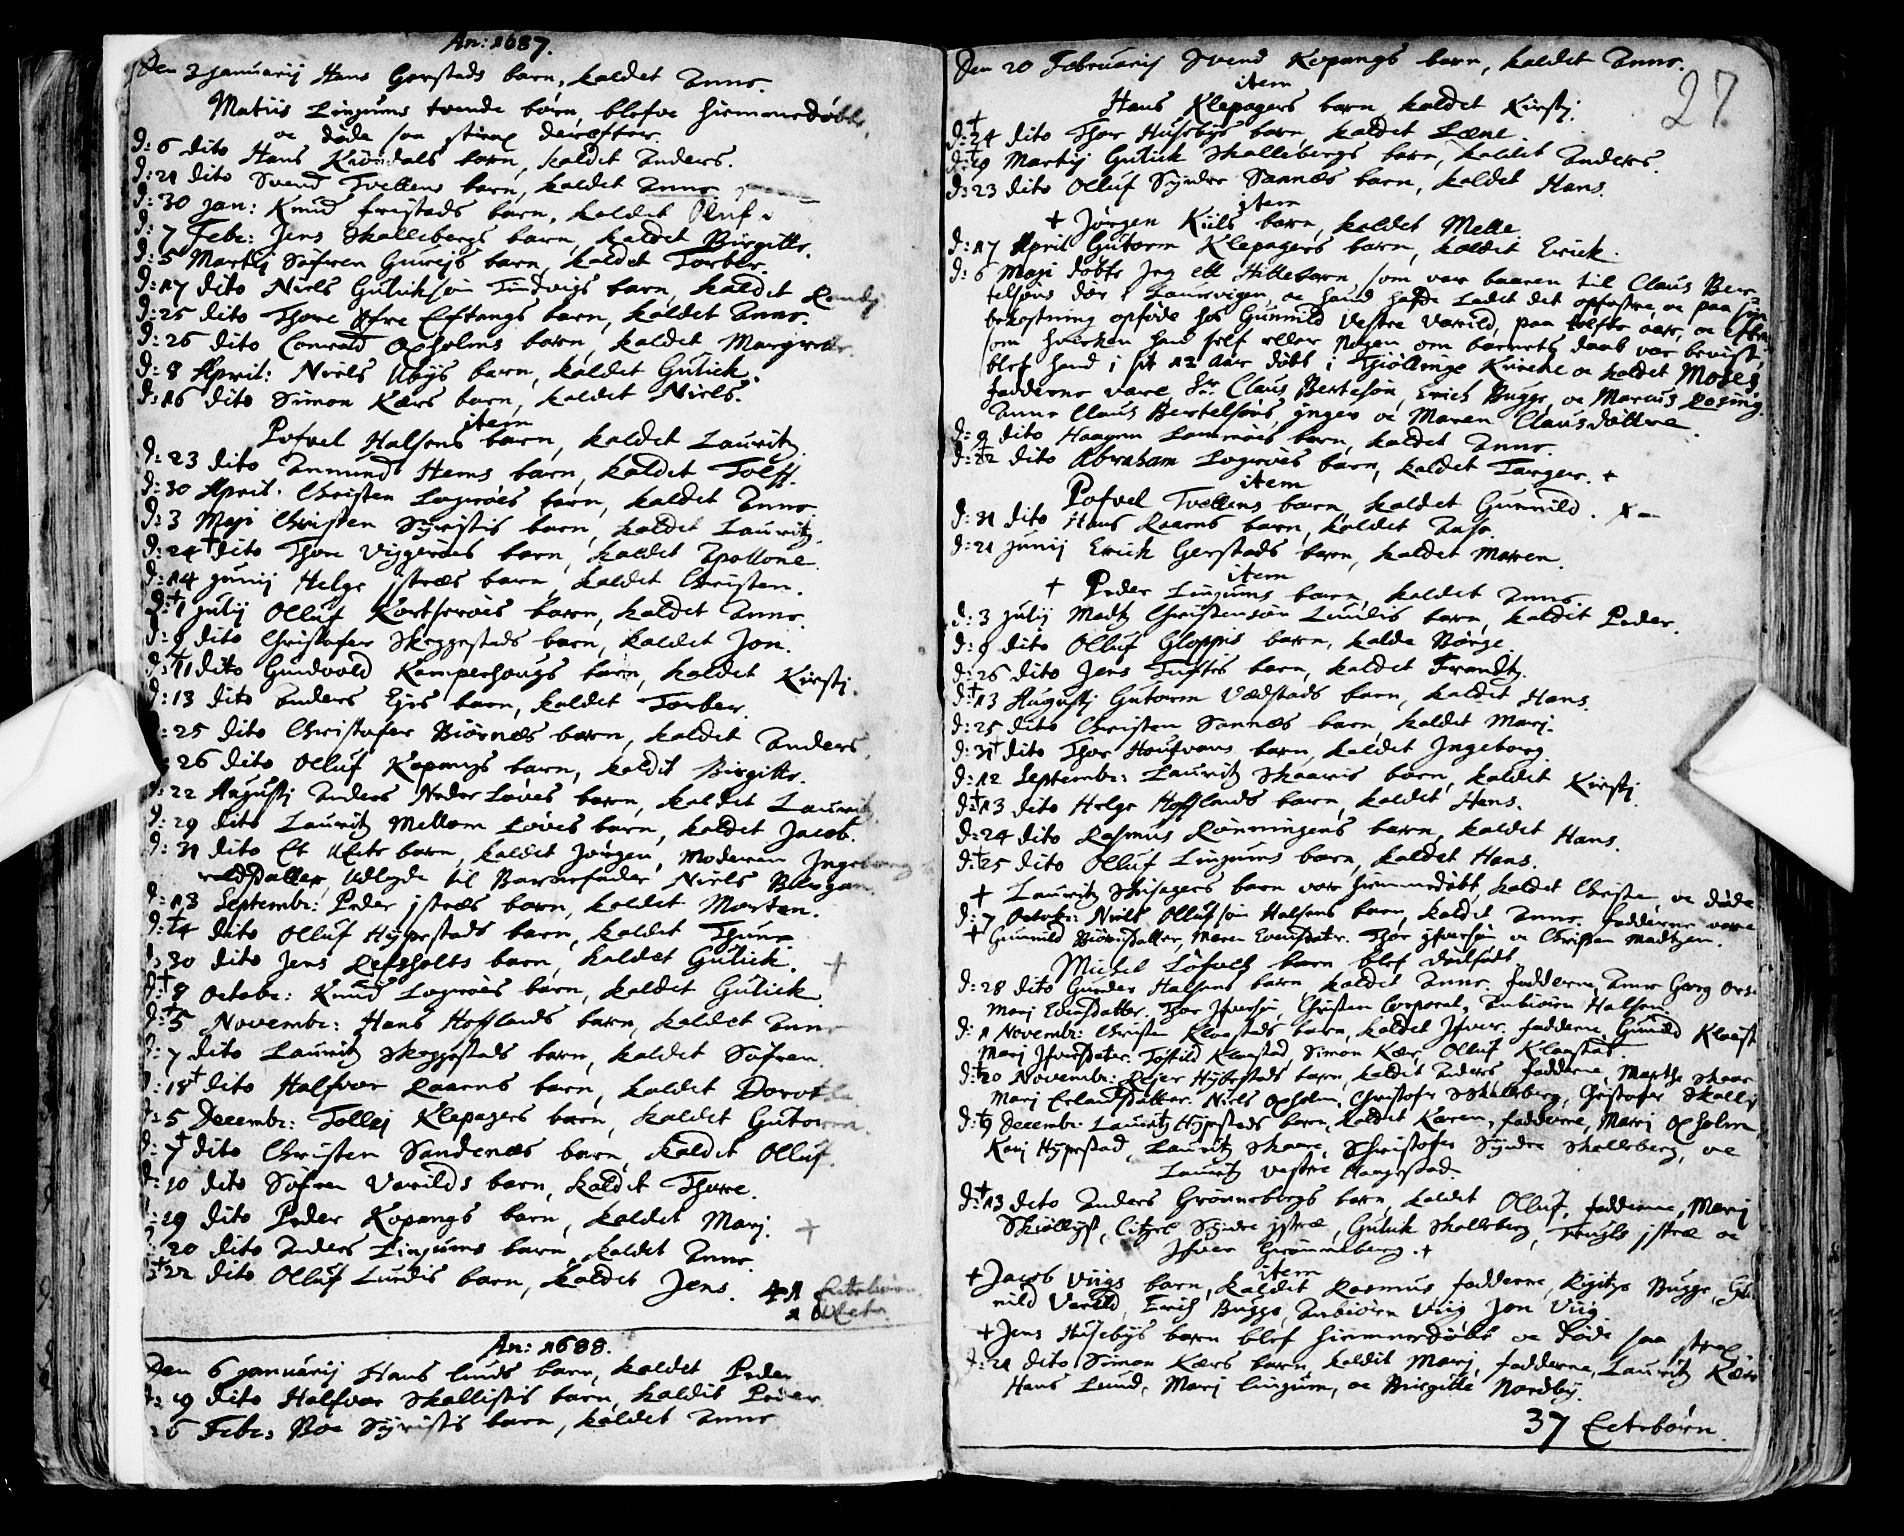 An: 1687.
Den 2 januarij Hans Gerstads barn, kaldet Anne.
Matiis Lingums tvende børn, blefve hiemmedøbte,
oc døde saa strax derefter.
d: 6 dito Hans Kiøndals barn, kaldet Anders.
d: 21 dito Svend Tvetens barn, kaldet Anne
d: 30 jan: Knud Fristads barn, kaldet Oluf.
d: 7 Febr: Jens Skallebergs barn, kaldet Birgitte.
d: 5 Martij Søfren Gurejs barn, kaldet Torber.
d: 17 dito Niels Guliksøn Tindvigs barn, kaldet Randj
d: 25 dito Thore Øfre Eftangs barn, kaldet Anne.
d: 26 dito Conrad Oxholms barn, kaldet Margrete.
d: 8 April: Niels Ubys barn, kaldet Gulick.
d: 16 dito Simon Kærs barn, kaldet Niels.
item
Pofvel Halsens barn, kaldet Lauritz.
d: 23 dito Anmund Hems barn, kaldet Toleff.
d: 30 April. Christen Lagerøes barn, kaldet Anne.
d: 3 Maji Christen Syristis barn, kaldet Lauritz.
d: 24 † dito Thore Viggerøes barn, kaldet Apollone.
d: 14 junij Helge jstres barn, kaldet Christen.
d: † 1 julij Olluf Kortserøes barn, kaldet Anne.
d: 9 dito Christofer Skeggestads barn, kaldet Jon.
d: † 11 dito Gundvold Kamperhougs barn, kaldet Kirstj.
d: 13 dito Anders Ejes barn, kaldet Torber.
: 25 dito Christofer Biørnes barn, kaldet Anders.
: 26 dito Olluf Kopangs barn, kaldet Birgitte.
d: 22 Augustj Anders Neder Løves barn, kaldet Lauritz
d: 29 dito Lauritz Mellom Løves barn, kaldet Jacob.
d: 31 dito Et Uecte barn, kaldet Jørgen, Moderen Ingeborg
datter, Udlagde til Barnefader Niels
d: 18 Septembr: Peder jstres barn, kaldet Morten.
d: † 4 dito Olluf Hyprestads barn, kaldet Thure
d: 30 dito Jens Refsholts barn, kaldet Gulick. †
d: † 8 Octobr: Knud Lagerøes barn, kaldet Gulick.
d: † 5 Novembr: Hans Hofflands barn, kaldet Anne
d: 7 dito Lauritz Skeggestads barn, kaldet Søfren.
: 18 † dito Halfvor Raarns barn, kaldet Dorothe
: 5 Decembr: Tollej Klepagers barn, kaldet Gutorm.
: 7 † dito Christen Sandenæs barn, kaldet Olluf.
: 10 dito Søfren Varilds barn, kaldet Thorre.
: 19 dito Peder Kopangs barn, kaldet Marj. †
: 20 dito Anders Lingums barn, kaldet Anne.
: † 22 dito Olluf Lundis barn, kaldet Jens.
41 Ectebørn.
1 Uecte.
An: 1688.
Den 6 januarij Hans Lunds barn, kaldet Peder
d: 19 dito Halfvor Skallistis barn, kaldit Peder
: 6 Febr: Boe Syristis barn, kaldet Anne
27
Den 20 Februarij Svend Kopangs barn, kaldet Anne.
item
Hans Klepagers barn, kaldet Kirstj.
d: † 24 dito Thor Husebys barn, kaldet Lene.
d: † 19 Martij Gulick Skallebergs barn, kaldet Anders.
d: 23 dito Olluf Syndre Sannæs barn, kaldet Hans.
item
† Jørgen Kiils barn, kaldet Melle.
d: 17 April Gutorm Klepagers barn, kaldet Erick.
d: 6 Maji døbte Jeg ett Hittebarn som var baaren til Claus Ber-
telsøns dør i Laurvigen, oc hand hafde ladet det opfostre, oc paa sin
bekostning opføde hos Gunnild Vestre Varild, paa tolfte aar, oc efter-
som hverken hand self eller Nogen om barnets daab var bevist,
blef hand i sit 12 aar døbt i Tjøllinge Kirche oc kaldet Moses.
Fadderne vare, Hr. Claus Bertelsøn, Erich Bugge, oc Marcus Rosing.
Anne Claus Bertelsøns, ynger oc Maren Clausdattre.
d: 9 dito Haagen Lamerøes barn, kaldet Anne.
d: 22 dito Abraham Lagerøes barn, kaldet Targer. †
item
Pofvel Tvetens barn, kaldet Gunnild.
d: 31 dito Hans Raarns barn, kaldet Aase.
d: 21 junij Erick Gerstads barn, kaldet Maren.
item
† Peder Lingums barn, kaldet Anne
d: 3 julij Madtz Christensøn Lundis barn, kaldit Peder.
d: 9 dito Olluf Gloppis barn, kalde Børge.
d: 26 dito Jens Tuftes barn, kaldet Frandtz.
d: † 13 Augustj Gutorm Vædstads barn, kaldit Hans.
d: 25 dito Christen Sannæs barn, kaldet Marj.
d: 31 † dito Thor Houfvans barn, kaldet Ingeborg.
d: 12 Septembr: Lauritz Skaaris barn, kaldet Kirstj.
d: † 13 dito Helge Hofflands barn, kaldet Hans.
d: 24 dito Rasmus Rønningens barn, kaldet Hans.
d: † 25 dito Olluf Lingums barn, kaldet Hans.
† Lauritz Skisagers barn var hiemmedøbt, kaldet Christen, oc døde
d: 7 Octobr: Niels Ollufsøn Halsens barn, kaldet Anne. Fadderne vare
† Gunnild Biørnsdatter, Maren Evensdater. Thor Ifversøn oc Christen Madtzen.
Michel Løfvels barn blef dødfødt.
d: 28 dito Gunder Halsens barn, kaldet Anne. Fadderne, Anne Georg
Marj Evensdatter. Thor Ifversøn, Christen Corporal, Anbiørn Halsen.
d: 1 Novembr: Christen Klaastads barn, kaldet Ifver. fadderne, Gunild Klaast
Marj Ifversdater. Tostild Klaastad, Simon Kær, Olluf Klaastad.
d: † 20 Novembr: Rejer Hybestads barn, kaldet Anders. fadderne, Marthe Skaar
Marj Erlandsdatter. Niels Oxholm, Christofer Skalleberg, Christofer Skalle
d: † 9 Decembr: Lauritz Hyprstads barn, kaldet Karen, fadderne, Marj Oxholm,
Karj Hyprstad, Lauritz Skaare, Christofer Syndre Skalleberg, oc
Lauritz Vestre Haugestad.
d: † 13 dito Anders Grønnebergs barn, kaldet Olluf, fadderne, Marj
Skiøllyst, Citzel Syndre jstre, Gulick Skalleberg, Truls jstre oc
Ifver Grønneberg. †
item
† Jacob Viigs barn, kaldet Rasmus, fadderne, Birgitte Bugge, Gun
nild Varild, Erich Bugge, Anbiørn Viig, Jon Viig
† Jens Husebys barn blef hiemmedøbt oc døde saa strax
d: 21 dito Simon Kærs barn, kaldit Marj, fadderne, Lauritz Kær
Hans Lund, Marj Lingum, oc Birgitte Nordby.
37 Ectebørn.